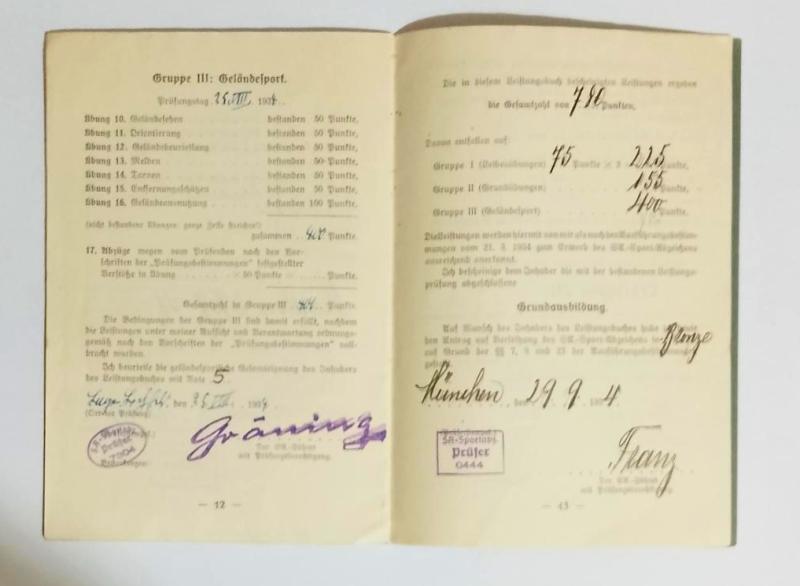 Gruppe III: Geländesport.
Prüfungstag 25. VIII. 1934.
Übung 10. Geländesehen bestanden 50 Punkte,
Übung 11. Orientierung bestanden 50 Punkte,
Übung 12. Geländebeurteilung bestanden 50 Punkte,
Übung 13. Melden bestanden 50 Punkte,
Übung 14. Tarnen bestanden 50 Punkte,
Übung 15. Entfernungsschätzen bestanden 50 Punkte,
Übung 16. Geländeausnutzung bestanden 100 Punkte,
(nicht bestandene Übungen: ganze Zeile streichen!)
zusammen 400 Punkte.
17. Abzüge wegen vom Prüfenden nach den Vor-
schriften der „Prüfungsbestimmungen" festgestellter
Verstöße in Übung × 50 Punkte Punkte.
Gesamtzahl in Gruppe III 400 Punkte.
Die Bedingungen der Gruppe III sind damit erfüllt, nachdem
die Leistungen unter meiner Aufsicht und Verantwortung ordnungs-
gemäß nach den Vorschriften der „Prüfungsbestimmungen" voll-
bracht wurden.
Ich beurteile die geländesportliche Gesamteignung des Inhabers
des Leistungsbuches mit Note 5
den 25. VIII. 1934
(Ort der Prüfung)
SA-Sportabz.
Prüfer
7904
Gröning
Der SA-Führer
mit Prüfungsberechtigung.
— 42 —
Die in diesem Leistungsbuch bescheinigten Leistungen ergeben
die Gesamtzahl von 780 Punkten,
Davon entfallen auf:
Gruppe I (Leibesübungen) 75 Punkte × 3 225 Punkte,
Gruppe II (Grundübungen) 155 Punkte,
Gruppe III (Geländesport) 400 Punkte.
Die Leistungen werden hiermit von mir als nach der Ausführungsbestim-
mungen vom 21. 3. 1934 zum Erwerb des SA-Sport-Abzeichens
ausreichend anerkannt.
Ich bescheinige dem Inhaber die mit der bestandenen Leistungs-
prüfung abgeschlossene
Grundausbildung.
Auf Wunsch des Inhabers des Leistungsbuches habe ich mit
den Antrag auf Verleihung des SA-Sport-Abzeichens in Bronze
auf Grund der §§ 7, 9 und 23 der Ausführungsbestimmungen
gestellt.
München, den 29 9 1934
SA-Sportabz.
Prüfer
0444
Franz
Der SA-Führer
mit Prüfungsberechtigung.
— 43 —